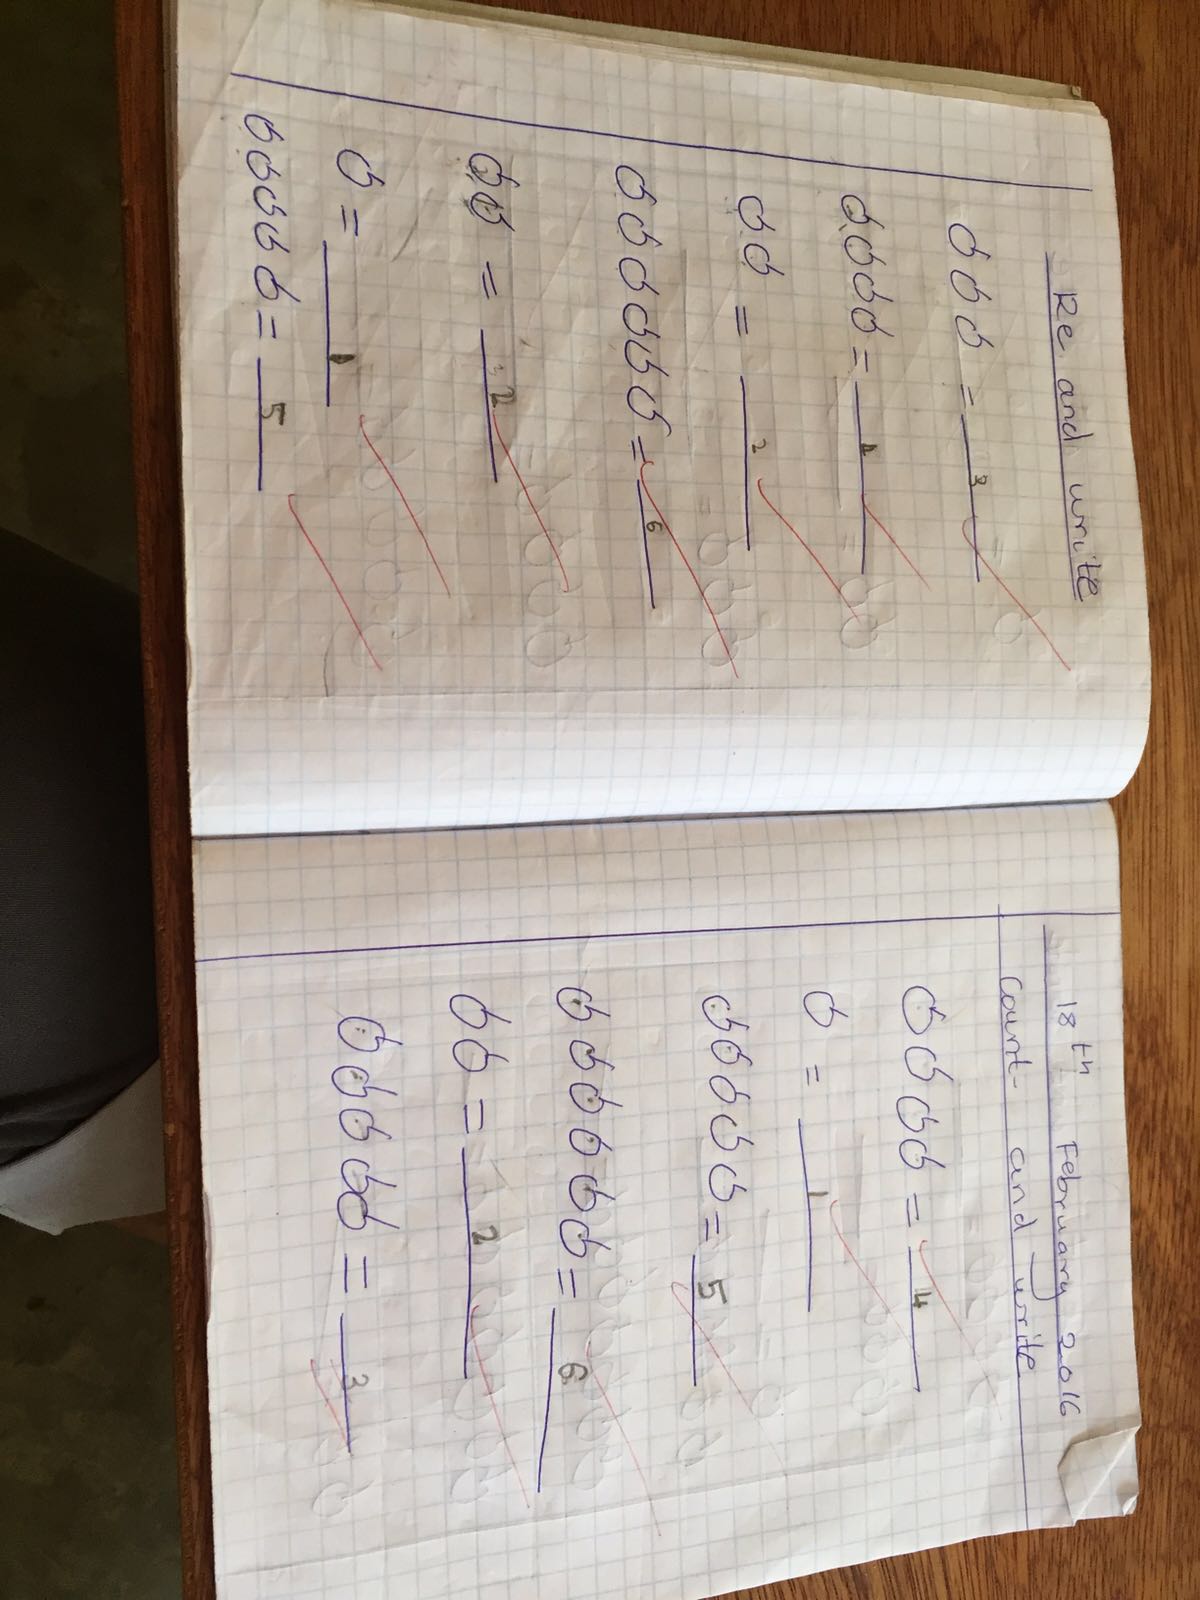 Re and write
= 3
=
= 2
= 6
= 2
= 1
= 5
18th February 2016
Count and write
= 4
= 1
= 5
= 6
= 2
= 3